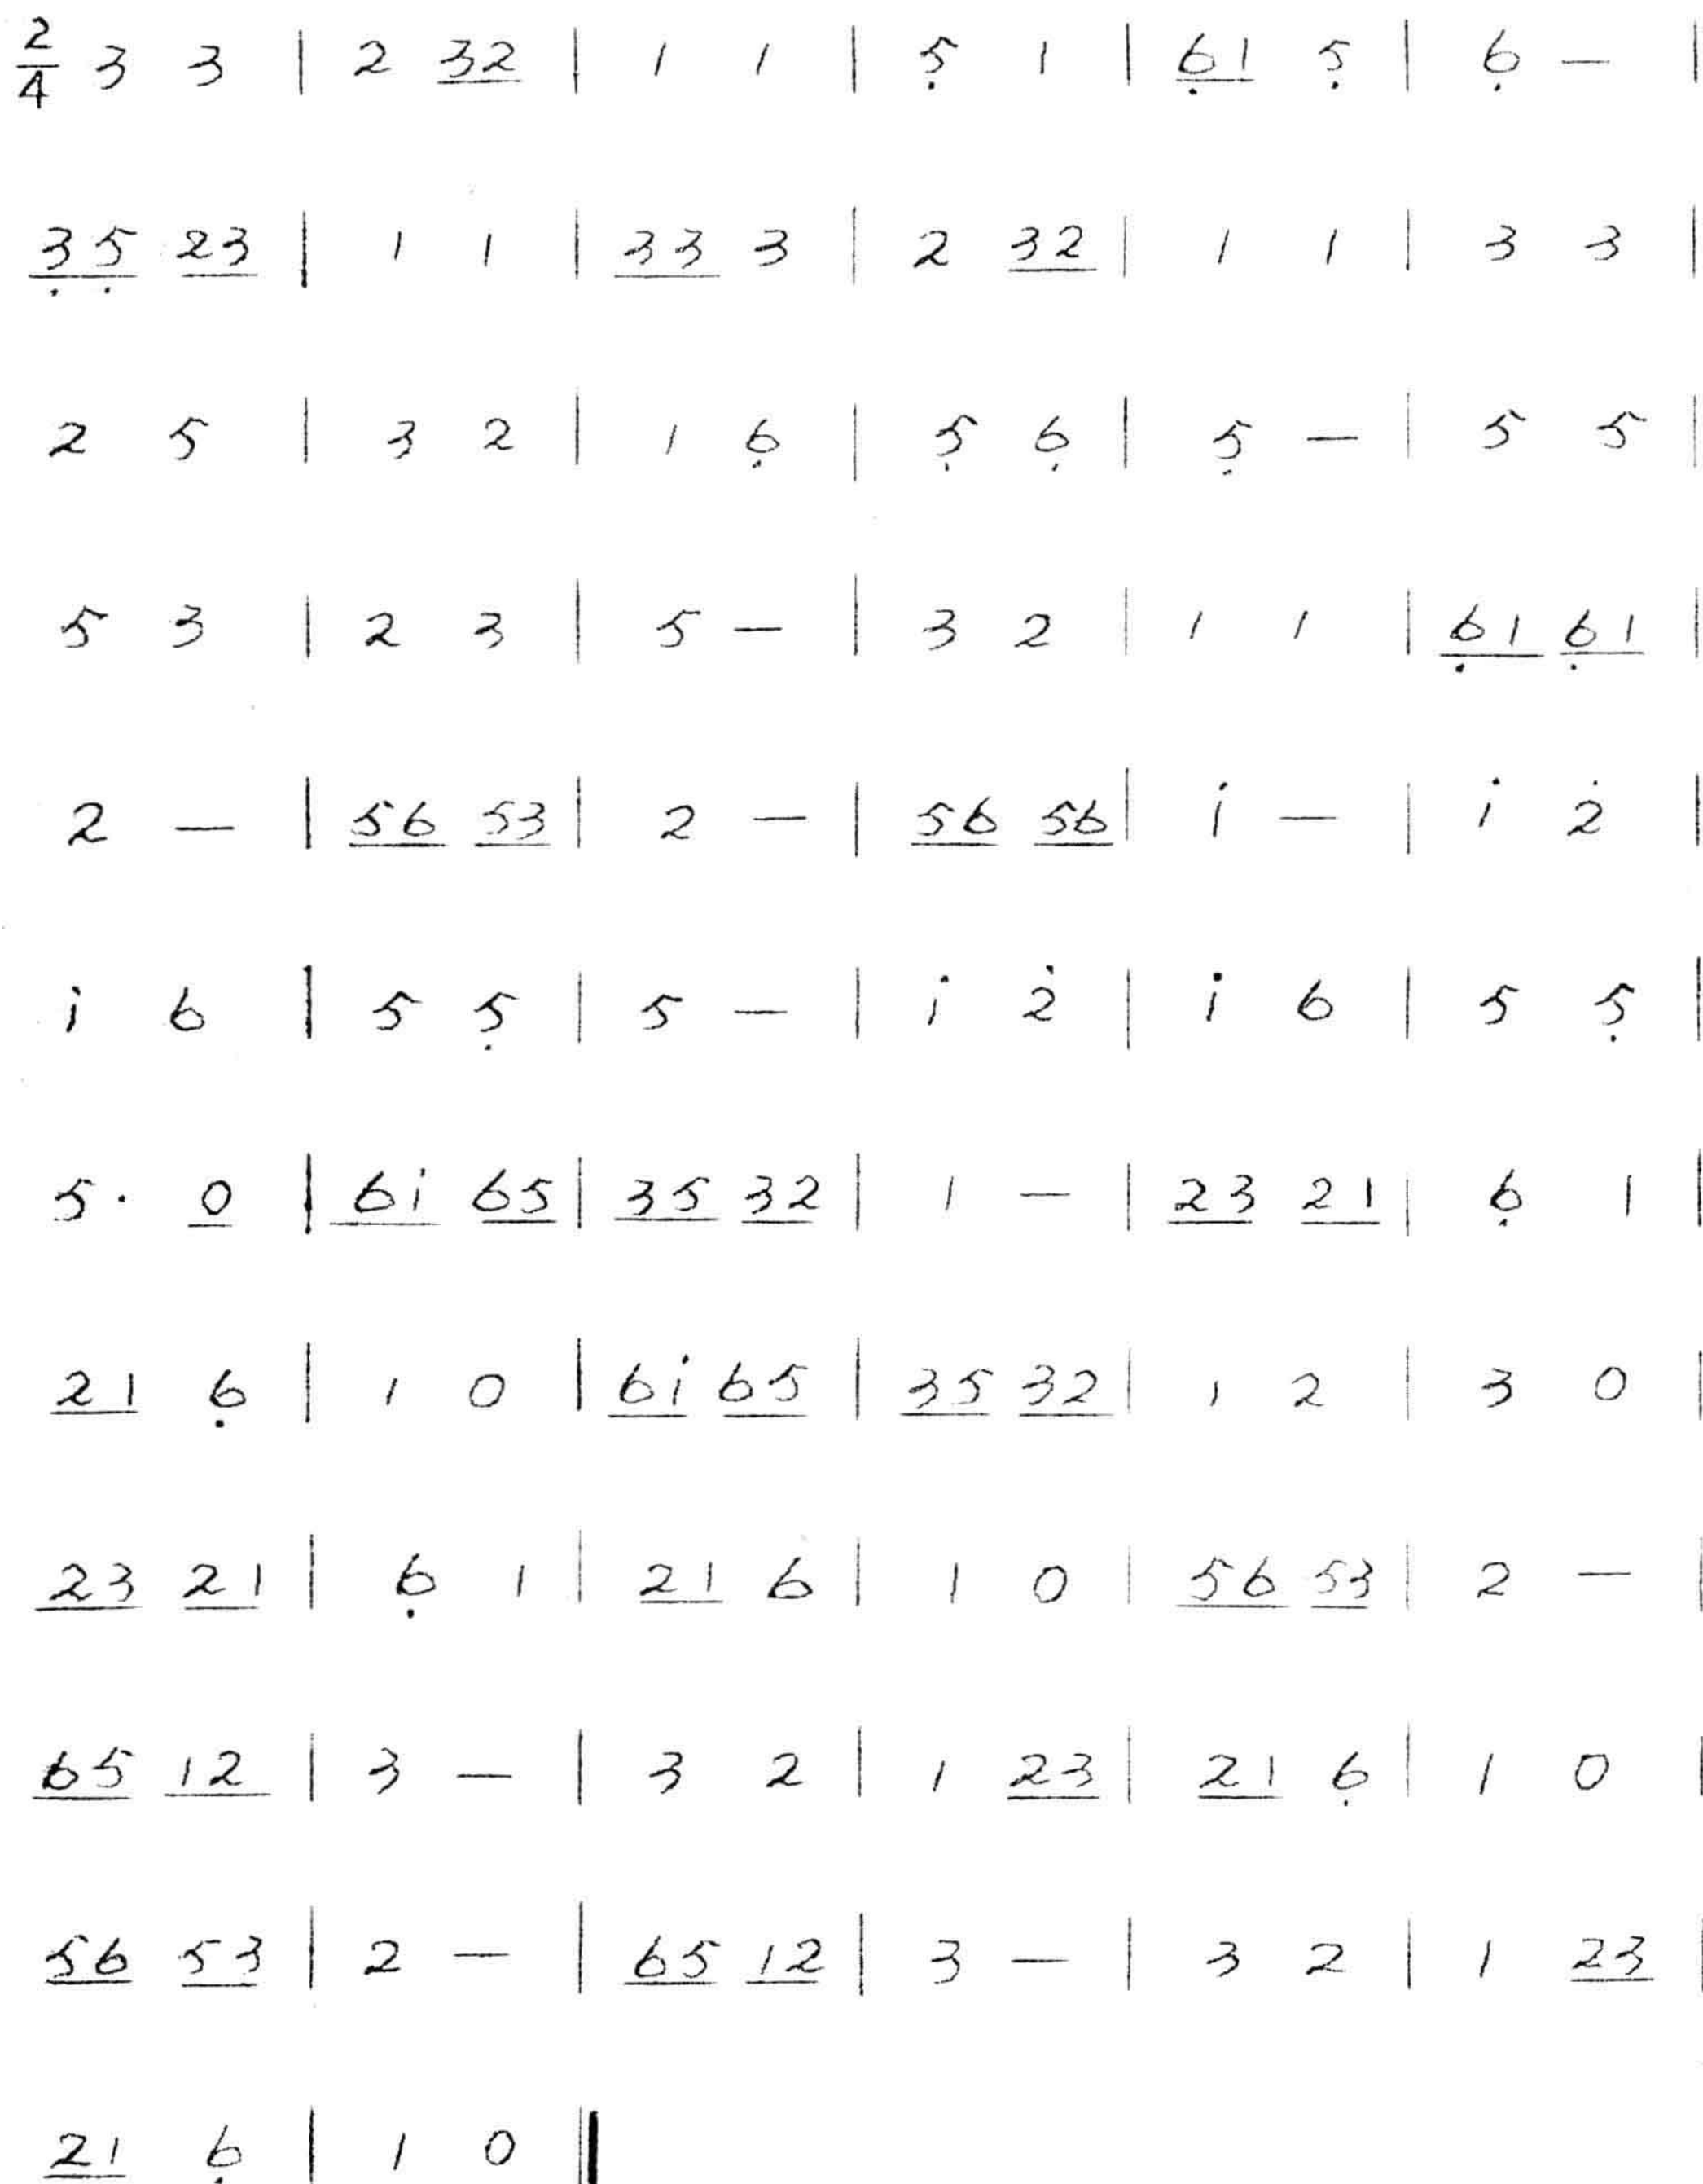 2/4 3 3 | 2 3̲2̲ | 1 1 | 5̣ 1 | 6̣̲1̲ 5̣ | 6̣ — |
3̣̲5̣̲ 2̲3̲ | 1 1 | 3̲3̲ 3 | 2 3̲2̲ | 1 1 | 3 3 |
2 5 | 3 2 | 1 6̣ | 5̣ 6̣ | 5̣ — | 5 5 |
5 3 | 2 3 | 5 — | 3 2 | 1 1 | 6̣̲1̲ 6̣̲1̲ |
2 — | 5̲6̲ 5̲3̲ | 2 — | 5̲6̲ 5̲6̲ | 1̇ — | 1̇ 2̇ |
1̇ 6 | 5 5̣ | 5 — | 1̇ 2̇ | 1̇ 6 | 5 5̣ |
5· 0̲ | 6̲1̲̇ 6̲5̲ | 3̲5̲ 3̲2̲ | 1 — | 2̲3̲ 2̲1̲ | 6̣ 1 |
2̲1̲ 6̣ | 1 0 | 6̲1̲̇ 6̲5̲ | 3̲5̲ 3̲2̲ | 1 2 | 3 0 |
2̲3̲ 2̲1̲ | 6̣ 1 | 2̲1̲ 6 | 1 0 | 5̲6̲ 5̲3̲ | 2 — |
6̲5̲ 1̲2̲ | 3 — | 3 2 | 1 2̲3̲ | 2̲1̲ 6̣ | 1 0 |
5̲6̲ 5̲3̲ | 2 — | 6̲5̲ 1̲2̲ | 3 — | 3 2 | 1 2̲3̲ |
2̲1̲ 6̣ | 1 0 ‖